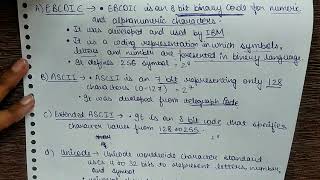 A) EBCDIC → • EBCDIC is an 8 bit binary code for numeric
and alphanumeric characters.
• It was developed and used by IBM
• It is a coding representation in which symbols,
letters and number are presented in binary language
• It defines 256 symbol = 2⁸
B) ASCII → • ASCII is a 7 bit representing only 128
characters (0-127) = 2⁷
• It was developed from telegraph code
c) Extended ASCII → • It is an 8 bit code that specifies
character values from 128 to 255
= 2⁸
d) Unicode → Unicode worldwide character standard
uses 4 to 32 bits to represent letters, number,
and symbol